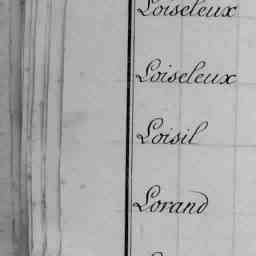 Loiseleux
Loiseleux
Loisil
Lorand